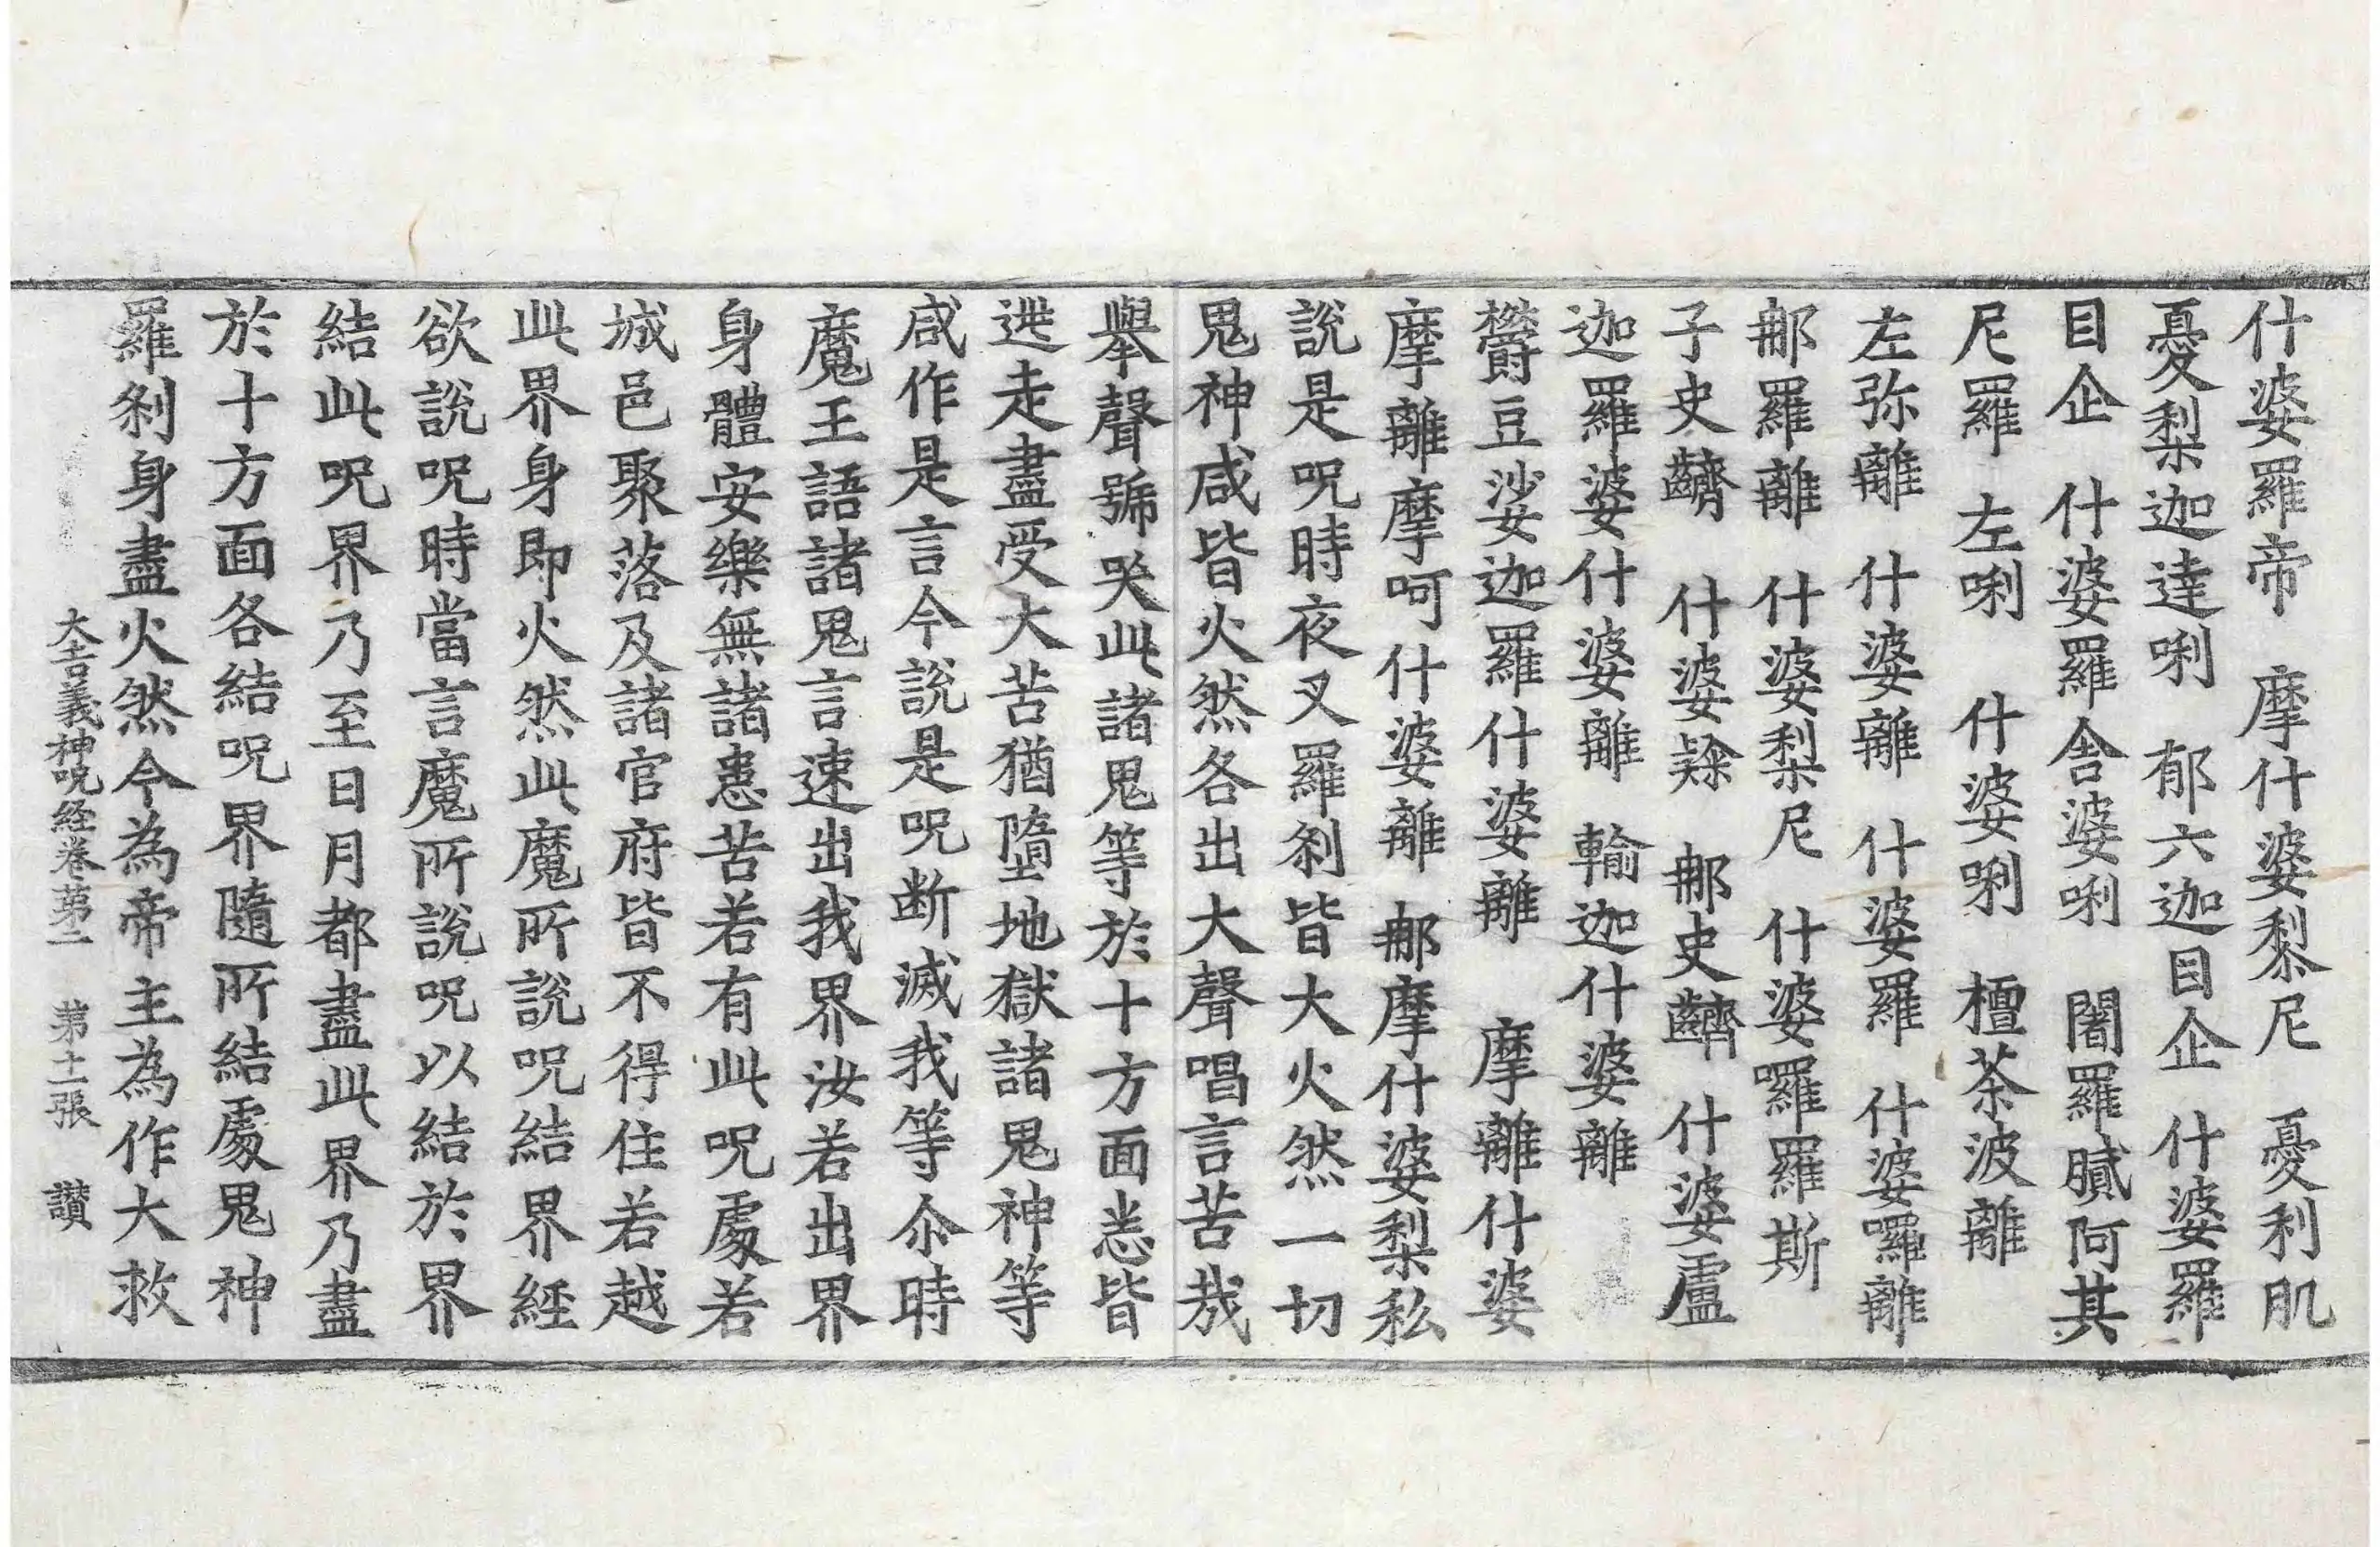 什婆羅帝　摩什婆黎尼　憂利肌
憂梨迦達唎　郁六迦目企　什婆羅
目企　什婆羅舍婆唎　闍羅膩阿其
尼羅　左唎　什婆唎　檀茶波離
左弥離　什婆離　什婆羅　什婆囉離
那羅離　什婆梨尼　什婆囉羅斯
子史齌　什婆　那史齌　什婆盧
迦羅婆什婆離　輸迦什婆離
欝豆娑迦羅什婆離　摩離什婆
摩離摩呵什婆離　那摩什婆梨私
說是呪時夜叉羅剎皆大火然一切
鬼神咸皆火然各出大聲唱言苦哉
舉聲號哭此諸鬼等於十方面恙皆
逃走盡受大苦猶墮地獄諸鬼神等
咸作是言今說是呪断滅我等尒時
魔王語諸鬼言速出我界汝若出界
身體安樂無諸患苦若有此呪處若
城邑聚落及諸官府皆不得住若越
此界身即火然此魔所說呪結界經
欲說呪時當言魔所說呪以結於界
結此呪界乃至日月都盡此界乃盡
於十方面各結呪界隨所結處鬼神
羅剎身盡火然今為帝主為作大救
大吉義神呪経卷苐二　苐十一張　讃